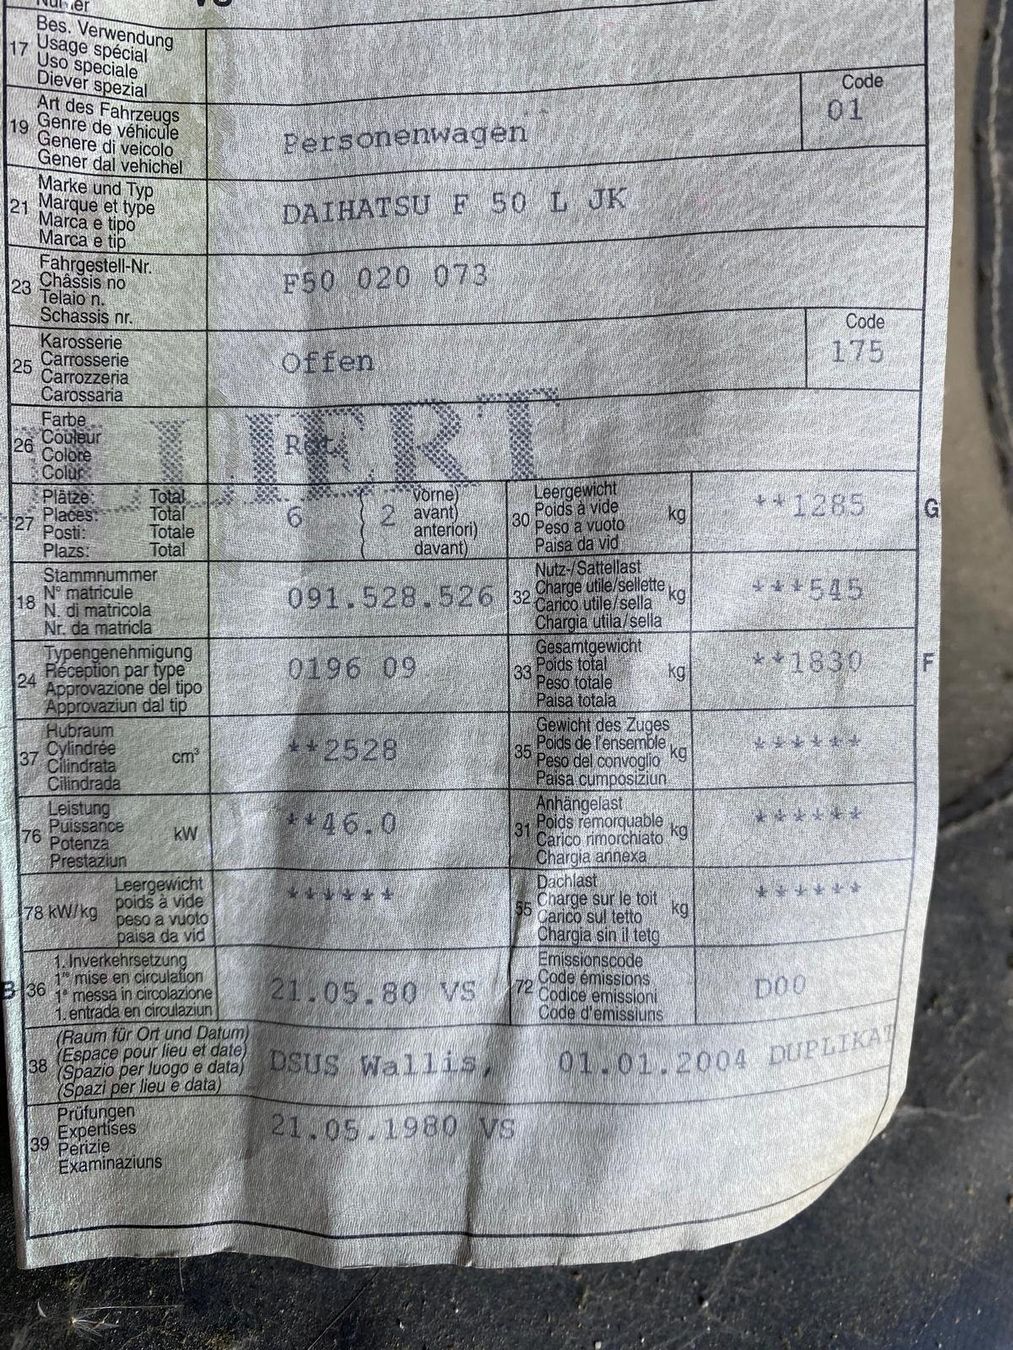 VS
Bes. Verwendung
17 Usage spécial
Uso speciale
Diever spezial
Art des Fahrzeugs
19 Genre de véhicule
Genere di veicolo
Gener dal vehichel
Personenwagen
Code
01
Marke und Typ
21 Marque et type
Marca e tipo
Marca e tip
DAIHATSU F 50 L JK
Fahrgestell-Nr.
23 Châssis no
Telaio n.
Schassis nr.
F50 020 073
Karosserie
25 Carrosserie
Carrozzeria
Carossaria
Offen
Code
175
Farbe
26 Couleur
Colore
Colur
Rot
LIERT
27 Plätze: Total
Places: Total
Posti: Totale
Plazs: Total
6 ( 2 vorne)
avant)
anteriori)
davant)
30 Leergewicht
Poids à vide
Peso a vuoto
Paisa da vid
kg
**1285
G
18 Stammnummer
N° matricule
N. di matricola
Nr. da matricla
091.528.526
32 Nutz-/Sattellast
Charge utile/sellette
Carico utile/sella
Chargia utila/sella
kg
***545
24 Typengenehmigung
Réception par type
Approvazione del tipo
Approvaziun dal tip
0196 09
33 Gesamtgewicht
Poids total
Peso totale
Paisa totala
kg
**1830
F
37 Hubraum
Cylindrée
Cilindrata
Cilindrada
cm³
**2528
35 Gewicht des Zuges
Poids de l'ensemble
Peso del convoglio
Paisa cumposiziun
kg
******
76 Leistung
Puissance
Potenza
Prestaziun
kW
**46.0
31 Anhängelast
Poids remorquable
Carico rimorchiato
Chargia annexa
kg
******
78 kW/kg
Leergewicht
poids à vide
peso a vuoto
paisa da vid
******
55 Dachlast
Charge sur le toit
Carico sul tetto
Chargia sin il tetg
kg
******
B 36 1. Inverkehrsetzung
1re mise en circulation
1a messa in circolazione
1. entrada en circulaziun
21.05.80 VS
72 Emissionscode
Code émissions
Codice emissioni
Code d'emissiuns
D00
38 (Raum für Ort und Datum)
(Espace pour lieu et date)
(Spazio per luogo e data)
(Spazi per lieu e data)
DSUS Wallis, 01.01.2004 DUPLIKAT
39 Prüfungen
Expertises
Perizie
Examinaziuns
21.05.1980 VS